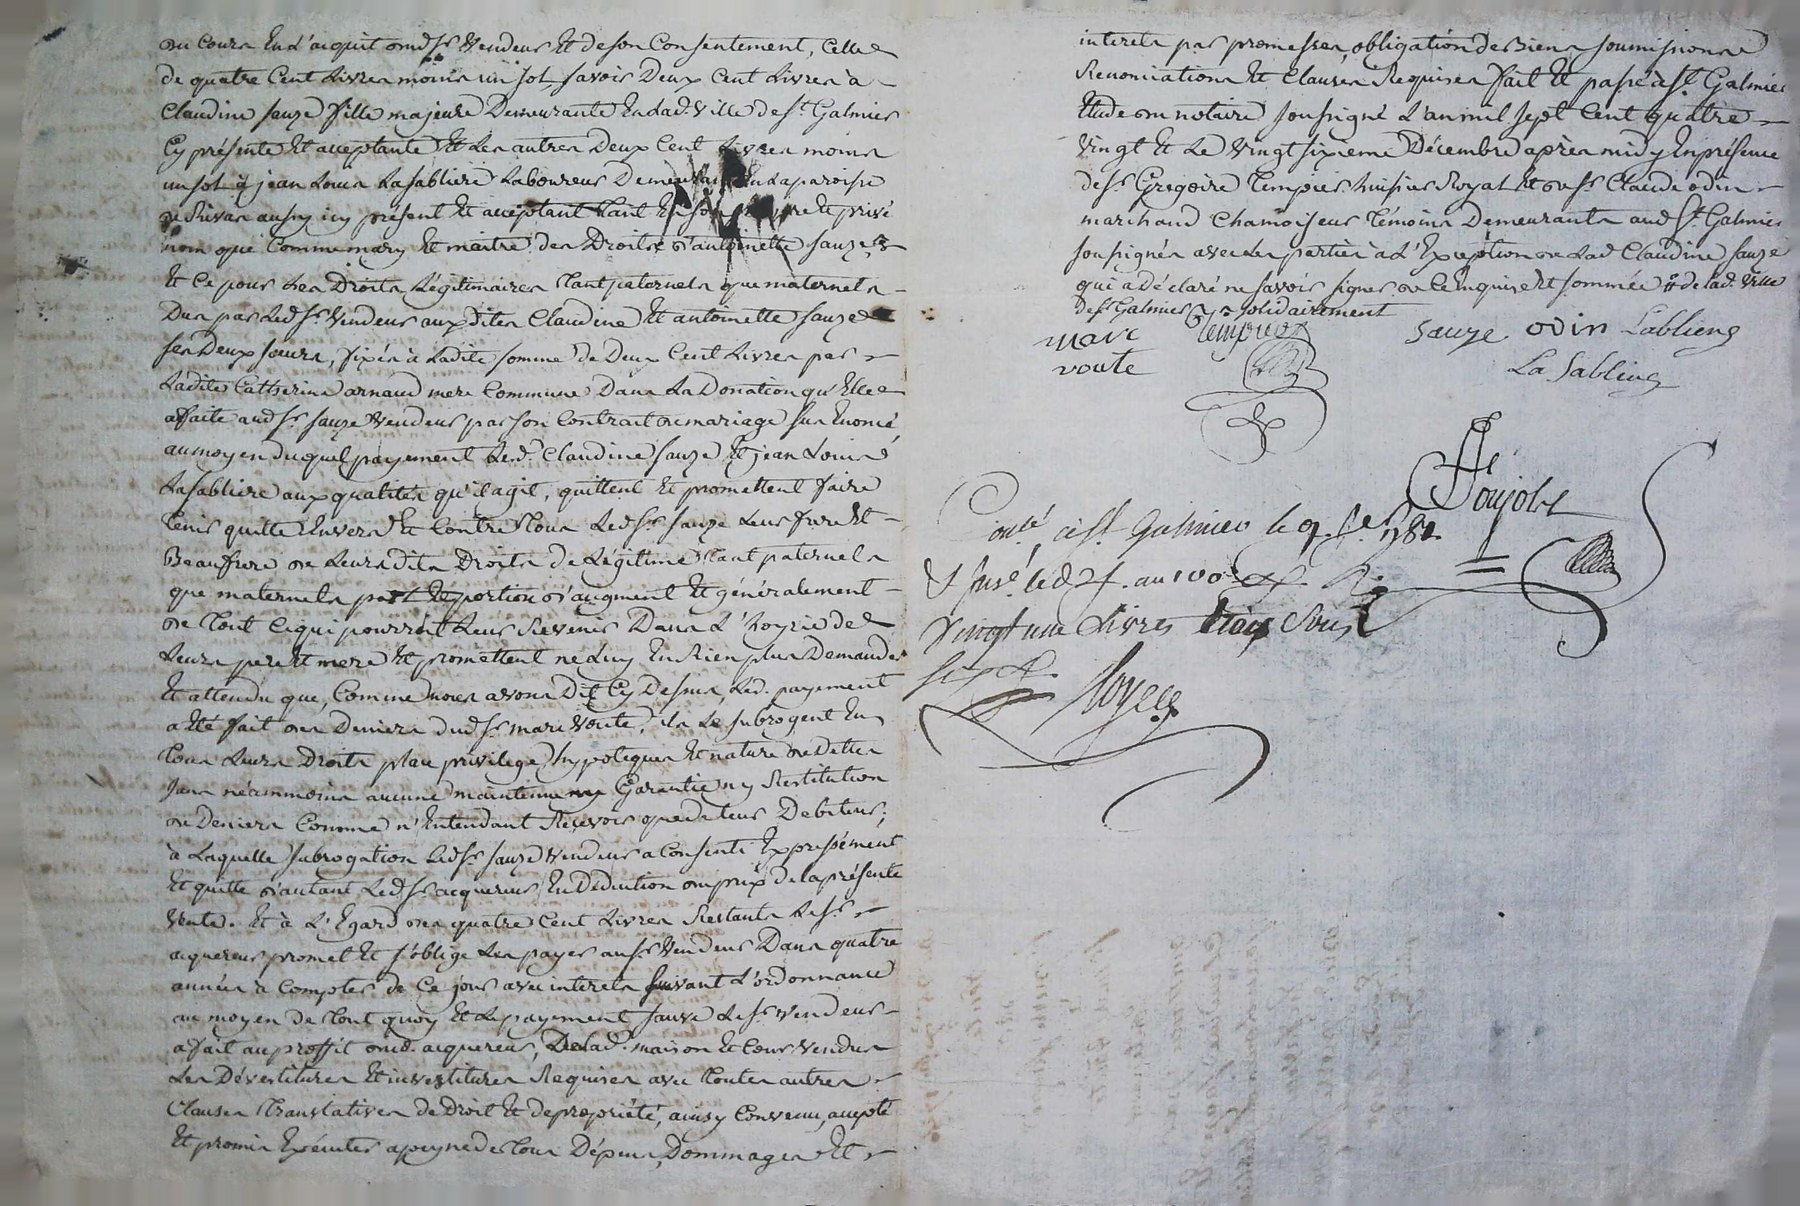 ou cour En l'acquit dud. Sr. Vendeur Et de son Consentement, Celle
de quatre Cent Livres moins un sol, savoir Deux Cent Livres à
Claudine sauze fille majeure Demeurante En lad. Ville de St. Galmier
Cy présente Et acceptante Et Les autres Deux Cent Livres moins
un sol à jean Louis Lasabliere Laboureur Demeurant En la paroisse
de Rivas aussy icy présent Et acceptant tant En son propre Et privé
nom que Comme mary Et maitre des Droits d'antoinette sauze
Et Ce pour Les Droits Légitimaires tant paternels que maternels
Dus par Led. Sr. Vendeur auxdites Claudine Et antoinette sauze
ses Deux soeurs, fixés à Ladite somme de Deux Cent Livres par
Ladite Catherine arnaud mere Commune Dans La Donation qu'Elle
a faite aud. Sr. sauze Vendeur par son Contrat de mariage sus Enoncé
au moyen duquel payement Led. Claudine sauze Et jean Louis
Lasabliere aux qualités qu'il agit, quittent Et promettent faire
tenir quitte Envers Et Contre tous Led. Sr. sauze Leur frere Et
Beaufrere de Leursdits Droits de Légitime tant paternels
que maternels part Et portion d'augment Et généralement
de tout Ce qui pourroit Leur Revenir Dans L'hoyrie de
Leurs pere Et mere Et promettent ne Luy En Rien plus Demander
Et attendu que, Comme nous avons Dit Cy Dessus, Led. payement
a Eté fait des Deniers dud. Sr. marc Voute, ils Le subrogent En
tous Leurs Droits place privilege hypoteques Et nature de Dettes
sans néammoins aucune maintenue ny Garantie ny Restitution
de Deniers Comme n'Entendant Recevoir que de Leur Debiteur;
à Laquelle subrogation Led. Sr. sauze Vendeur a Consenti Expressément
Et quitte d'autant Led. Sr. acquereur En Déduction du prix de la présente
Vente. Et à L'Egard des quatre Cent Livres Restants Le Sr.
acquereur promet Et s'oblige Les payer au Sr. Vendeur Dans quatre
années à Compter de Ce jour avec interets suivant L'ordonnance
au moyen de tout quoy Et Le payement sauve Le Sr. Vendeur
a fait au proffit dud. acquereur, De Lad. maison Et Cour Vendus
Les Dévestitures Et investitures Requises avec toutes autres
Clauses translatives de Droit Et de propriété, ainsy Convenu, accepté
Et promis Exécuter a peyne de tous Dépens, Dommages Et
interets par promesses, obligation de Biens soumissions
Renonciations Et Clauses Requises fait Et passé à St. Galmier
Etude du notaire soussigné L'an mil sept Cent quatre
Vingt Et Le Vingt sixieme Décembre après midy En présence
de Sr. Gregoire Tempier huissier Royal Et de Sr. Claude odin
marchand Chamoiseur témoins Demeurants aud. St. Galmier
soussignés avec Les parties à L'Exception de Lad. Claudine sauze
qui a déclaré ne savoir signer de Ce Enquise Et sommée de lad. Ville
de St. Galmier solidairement
marc Tempier sauze odin Lasabliere
voute La Sabliere
Poujolz
Conlé à St. Galmier le 9
Vingt une Livres trois Sous